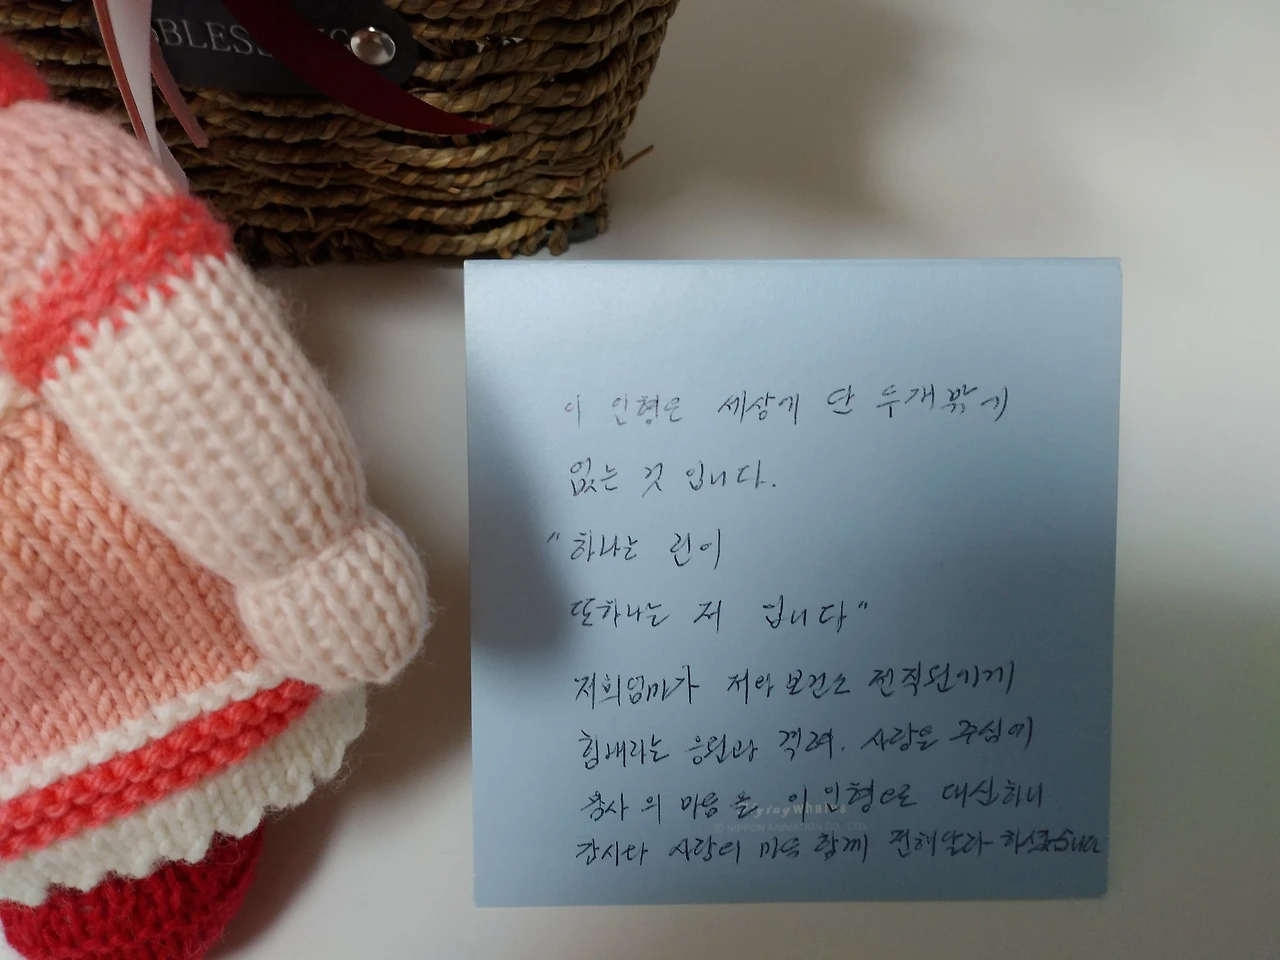 BLESS
이 인형은 세상에 단 두개밖에
없는 것 입니다.
"하나는 린이
또하나는 저 입니다"
저희엄마가 저와 보건소 전직원에게
힘내라는 응원과 격려. 사랑을 주심에
감사의 마음을 이 인형으로 대신하니
flying whales
© NIPPON ANIMATION CO., LTD.
감사와 사랑의 마음 함께 전해달라 하셨습니다